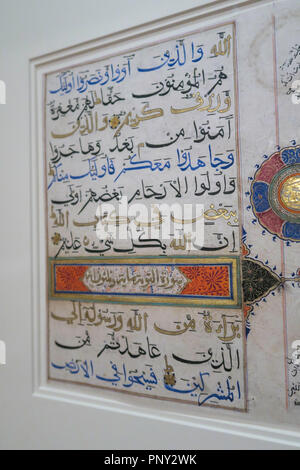 الله والذين آووا ونصروا أولئك
هم المؤمنون حقا لهم مغفرة
ورزق كريم والذين
آمنوا من بعد وهاجروا
وجاهدوا معكم فأولئك منكم
وأولوا الأرحام بعضهم أولى
ببعض في كتاب الله
إن الله بكل شيء عليم
سورة التوبة
براءة من الله ورسوله إلى
الذين عاهدتم من
المشركين فسيحوا في الأرض
alamy - PNY2WK